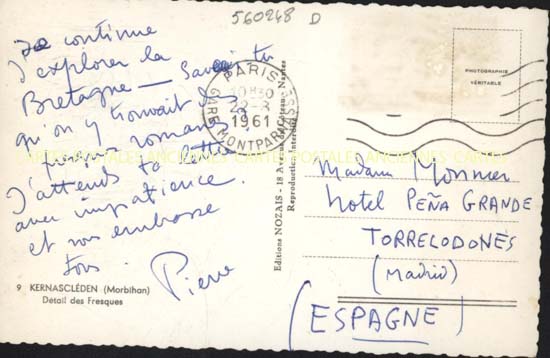 560248 D
Je continue
d'explorer la
Bretagne – Savais tu
qu'on y trouvait des
fresques romanes ?
J'attends ta lettre
avec impatience.
et vous embrasse
tous. Pierre
9 KERNASCLÉDEN (Morbihan)
Détail des Fresques
Editions NOZAIS - 18 Avenue du Coteau - Nantes
Reproduction Interdite
PARIS
10H30
22-8
1961
GARE MONTPARNASSE
PHOTOGRAPHIE
VÉRITABLE
Madame Monnier
hotel PEÑA GRANDE
TORRELODONES
(Madrid)
(ESPAGNE)
CARTES POSTALES ANCIENNES